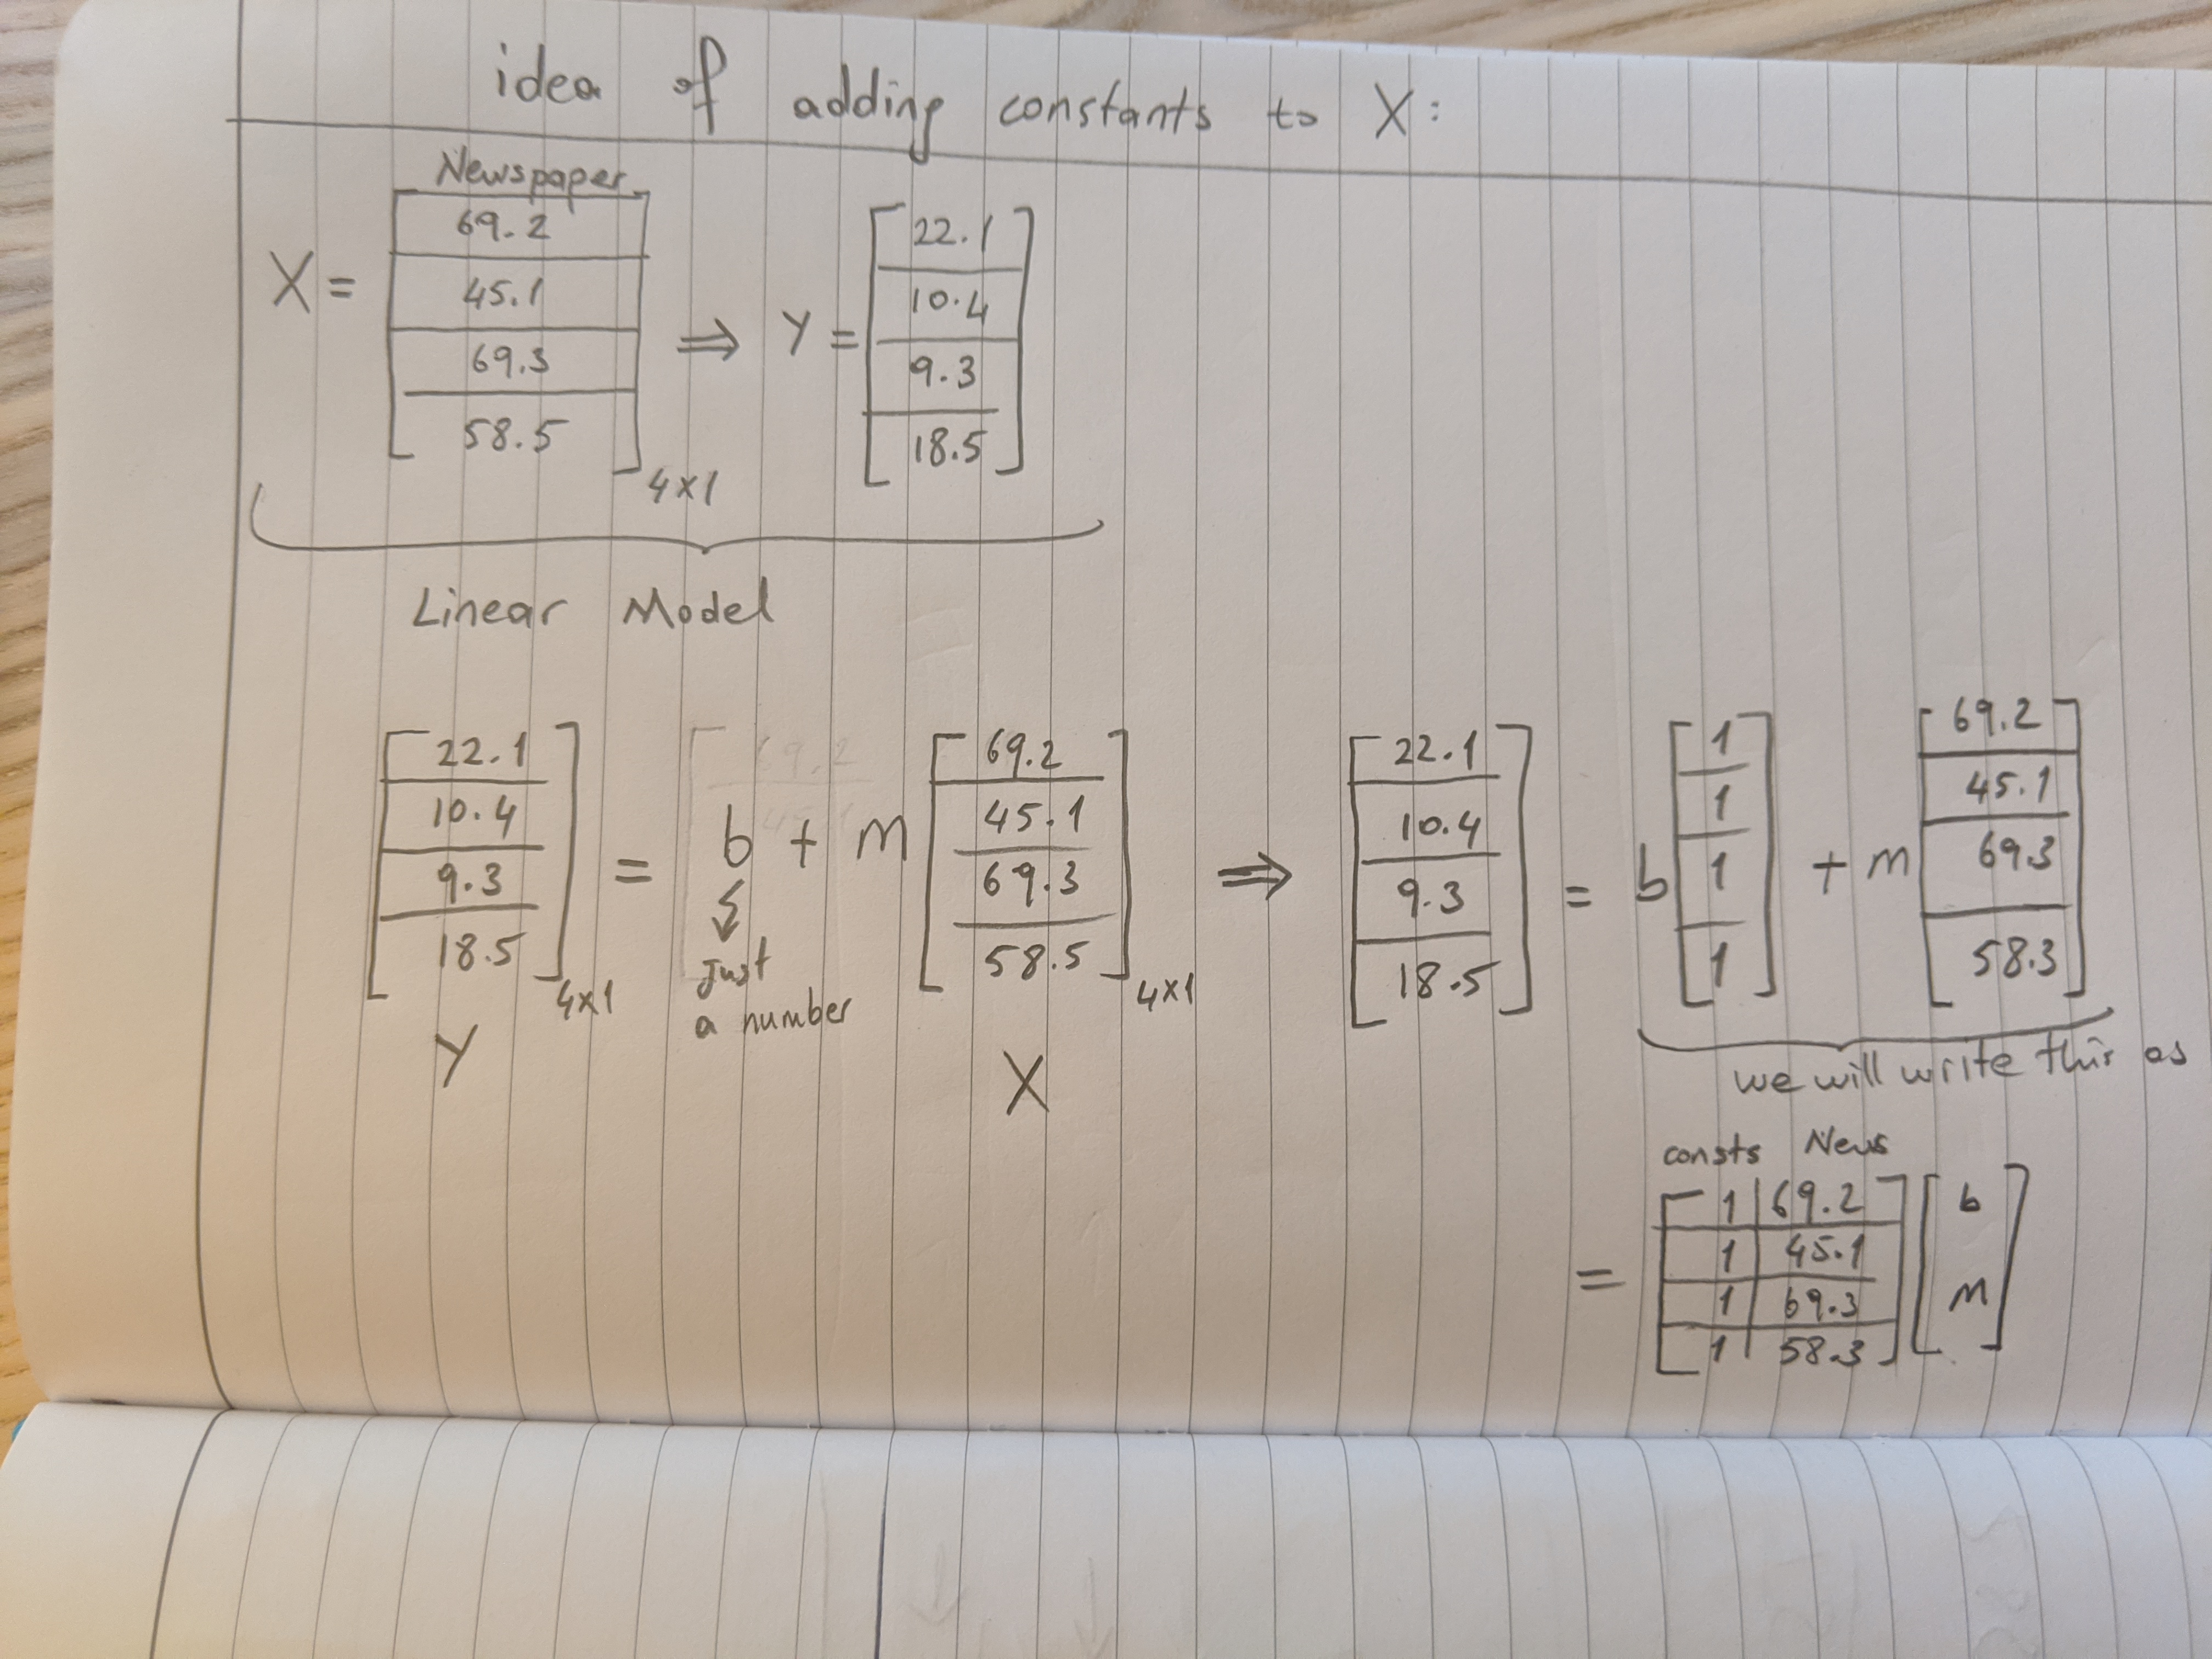 idea of adding constants to X:
Newspaper
X = [69.2 45.1 69.3 58.5] 4x1 ⇒ Y = [22.1 10.4 9.3 18.5]
Linear Model
[22.1 10.4 9.3 18.5] 4x1 = b + m [69.2 45.1 69.3 58.5] 4x1 ⇒ [22.1 10.4 9.3 18.5] = b [1 1 1 1] + m [69.2 45.1 69.3 58.3]
Y
Just
a number
X
we will write this as
consts News
= [1 69.2
1 45.1
1 69.3
1 58.3] [b m]